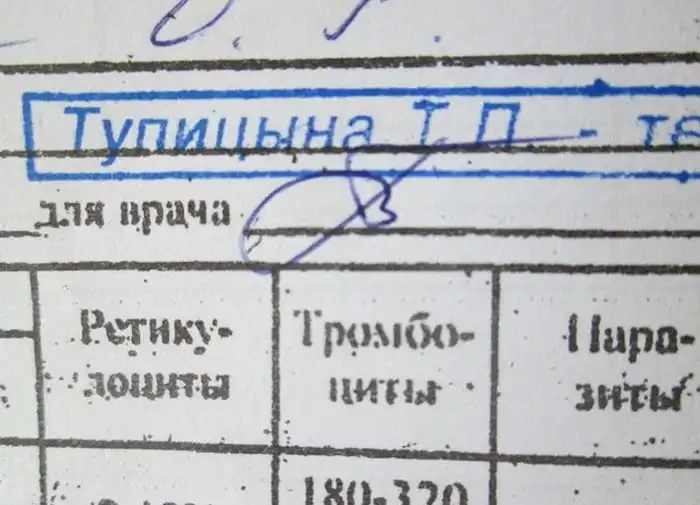 Тупицына Т.П. - те
для врача
Ретику- Тромбо- Пара-
лоциты циты зиты
180-320